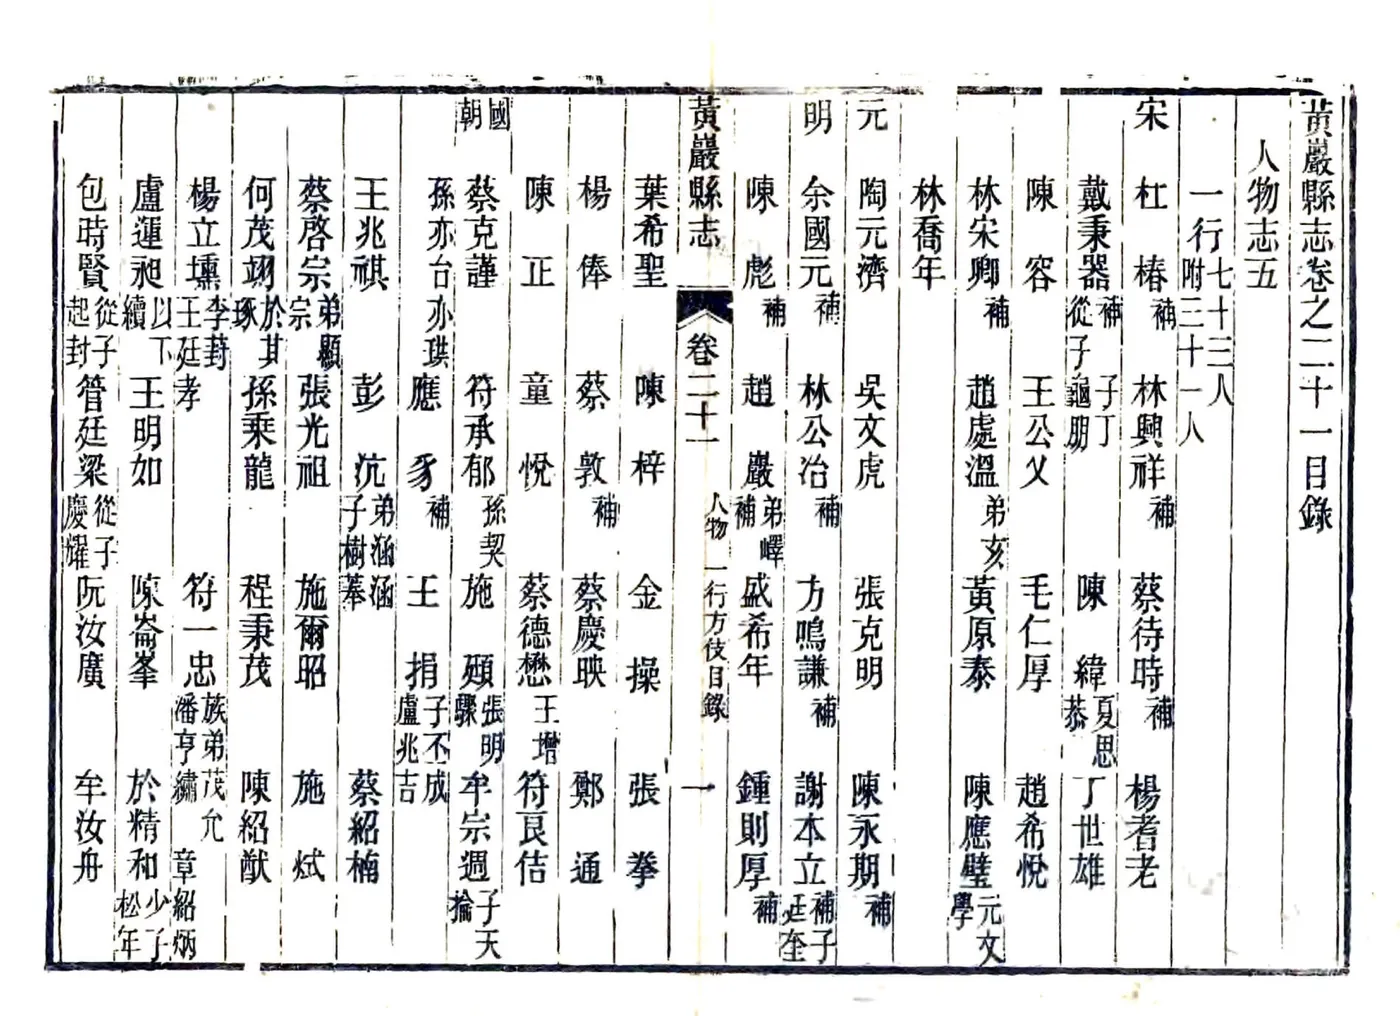 黃巖縣志卷之二十一目錄
人物志五
一行七十三人附三十一人
宋 杜椿補 林興祥補 蔡待時補 楊耆老
戴秉器補從子龜朋子丁 陳緯夏思恭 丁世雄
陳容 王公乂 毛仁厚 趙希悅
林宋卿補 趙處溫弟亥 黃原泰 陳應璧元文學
林喬年
元 陶元濟 吳文虎 張克明 陳永期補
明 余國元補 林公冶補 方鳴謙補 謝本立補子廷奎
陳彪補 趙巖弟嶧補 盛希年 鍾則厚補
黃巖縣志 卷二十一 人物 一行方伎目錄 一
葉希聖 陳梓 金操 張拳
楊俸 蔡敦補 蔡慶映 鄭通
陳正 童悅 蔡德懋王增 符良佶
國朝 蔡克謹 符承郁孫契 施頲張明驟 牟宗週子天掄
孫亦台亦珙 應豸補 王捐子丕成盧兆吉
王兆祺 彭沆弟涵涵子樹菶 蔡紹楠
蔡啓宗弟顯宗 張光祖 施爾昭 施烒
何茂翊於其琢 孫乘龍 程秉茂 陳紹猷
楊立壎李封王廷孝 符一忠族弟茂允潘亨繡 章紹炳
盧運昶以下續 王明如 陳崙峯 於精和少子松年
包時賢從子起封 管廷梁從子慶耀 阮汝廣 牟汝舟